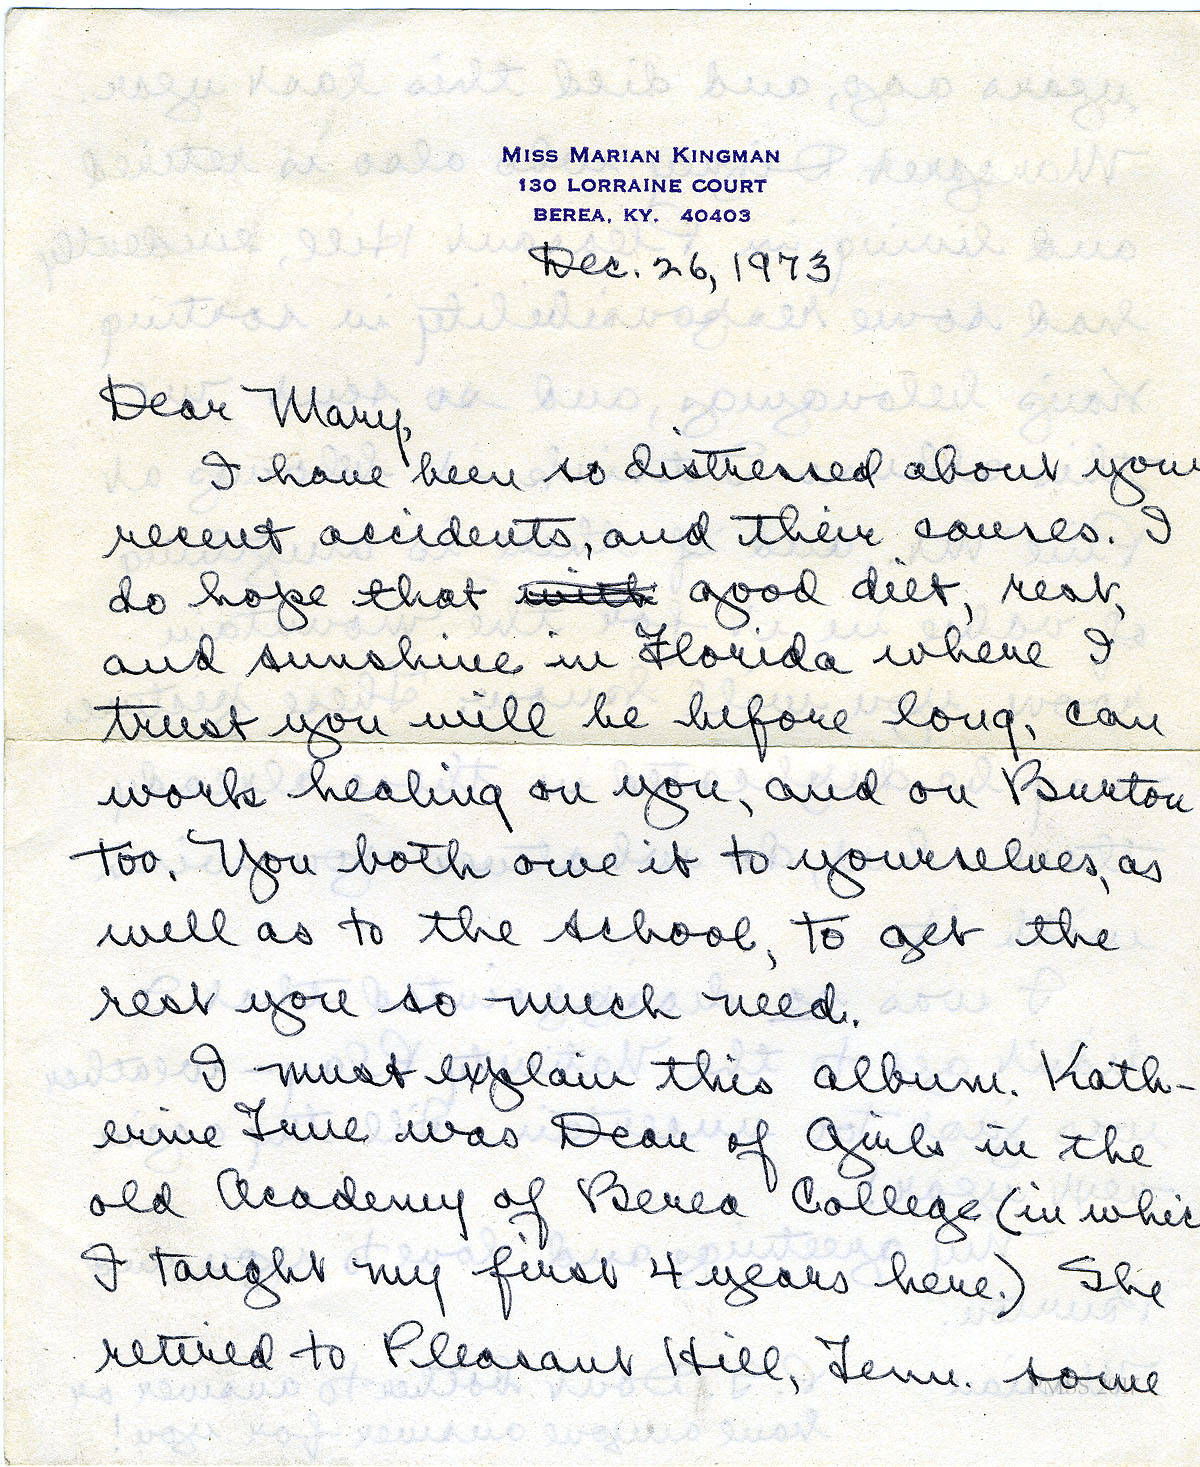 MISS MARIAN KINGMAN
130 LORRAINE COURT
BEREA, KY. 40403
Dec. 26, 1973
Dear Mary,
I have been so distressed about your
recent accidents, and their causes. I
do hope that with good diet, rest,
and sunshine in Florida where I
trust you will be before long, can
work healing on you, and on Burton
too. You both owe it to yourselves, as
well as to the school, to get the
rest you so much need.
I must explain this album. Kath-
erine True was Dean of Girls in the
old Academy of Berea College (in whic
I taught my first 4 years here.) She
retired to Pleasant Hill, Tenn. some